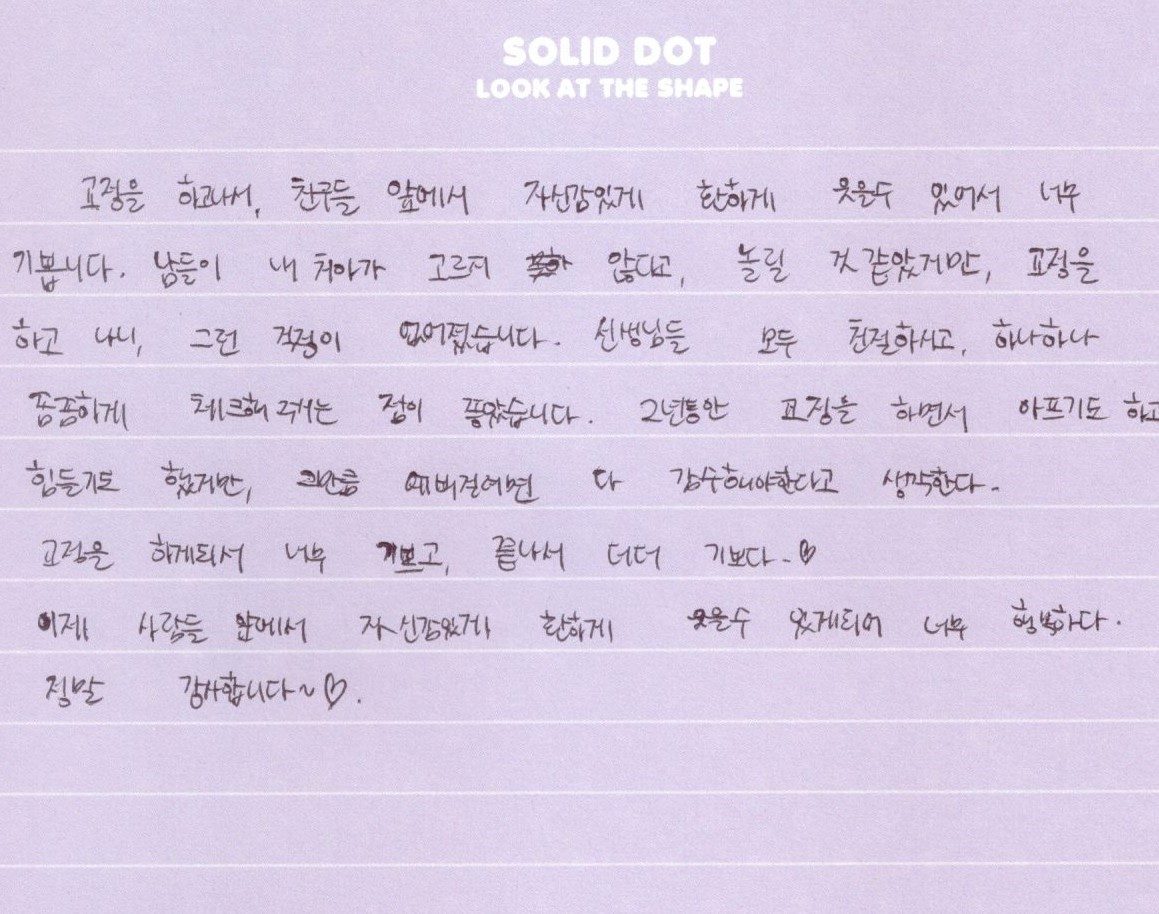 SOLID DOT
LOOK AT THE SHAPE
교정을 하고나서, 친구들 앞에서 자신감있게 환하게 웃을수 있어서 너무
기쁩니다. 남들이 내 치아가 고르지 않다고, 놀릴 것 같았지만, 교정을
하고 나니, 그런 걱정이 없어졌습니다. 선생님들 모두 친절하시고, 하나하나
꼼꼼하게 체크해 주시는 점이 좋았습니다. 2년동안 교정을 하면서 아프기도 하고
힘들기도 했지만, 그만큼 예뻐질려면 다 감수해야한다고 생각한다.
교정을 하게되서 너무 기쁘고, 끝나서 더더 기쁘다. ♡
이제 사람들 앞에서 자신감있게 환하게 웃을수 있게되어 너무 행복하다.
정말 감사합니다~♡.